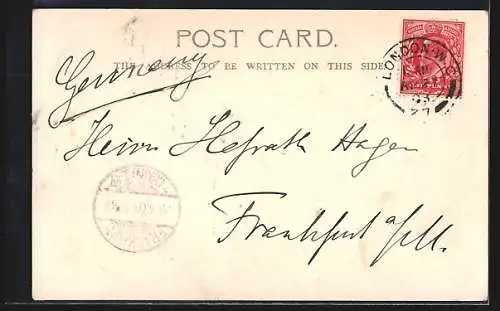 POST CARD.
THE ADDRESS TO BE WRITTEN ON THIS SIDE
Germany
LONDON. W.C.
27
Herrn Hofrath Hagen
Frankfurt a/M.